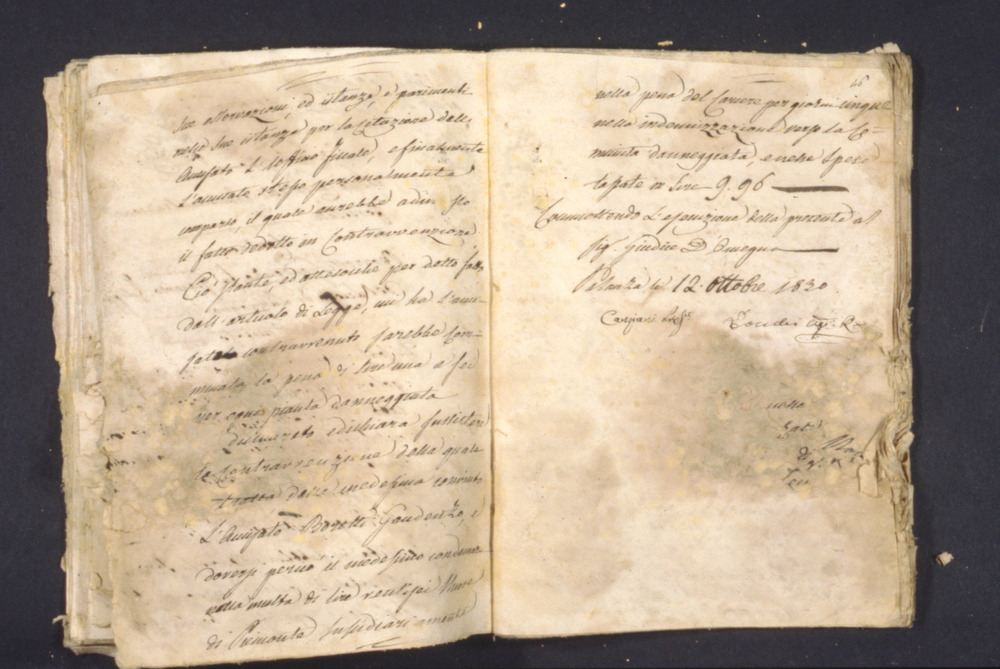 sue osservazioni, ed istanza, e parimenti
nelle sue istanze per la Citazione dell'
Accusato L'Uffizio fiscale, e finalmente
L'accusato stesso personalmente
comparso, il quale avrebbe
il fatto dedotto in Contravvenzione
Ciò stante, ed attesochè per detto fatto
dall'articolo di Legge, cui ha L'accu-
sato contravvenuto sarebbe Com-
minata la pena di lire una a sei
per ogni pianta danneggiata
dichiara sussistere
la Contravvenzione della quale
tratta convinto
L'Accusato Boretti Gaudenzo, e
doversi perciò il medesimo condannare
nella multa di lire ventisei Nuove
di Piemonte Sussidiariamente
46
nella pena del Carcere per giorni cinque
nella indennizzazione verso la Co-
munità danneggiata, e nelle Spese
tassate in Lire 9.96
Commettendo L'esecuzione della presente al
Sig. Giudice D'Omegna
Pallanza li 12. Ottobre 1830